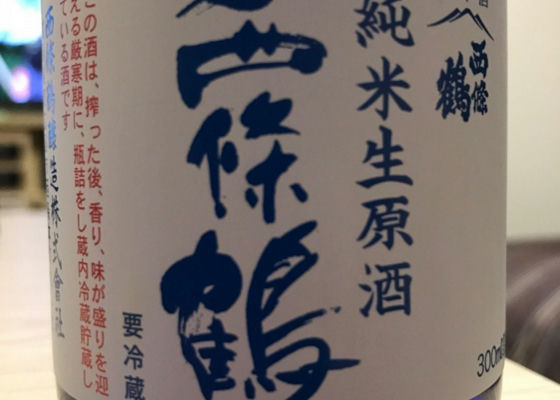 酒
西條
鶴
純米生原酒
西條鶴
300ml
要冷蔵
この酒は、搾った後、香り、味が盛りを迎
える厳寒期に、瓶詰をし蔵内冷蔵貯蔵し
ている酒です
西條鶴醸造株式會社